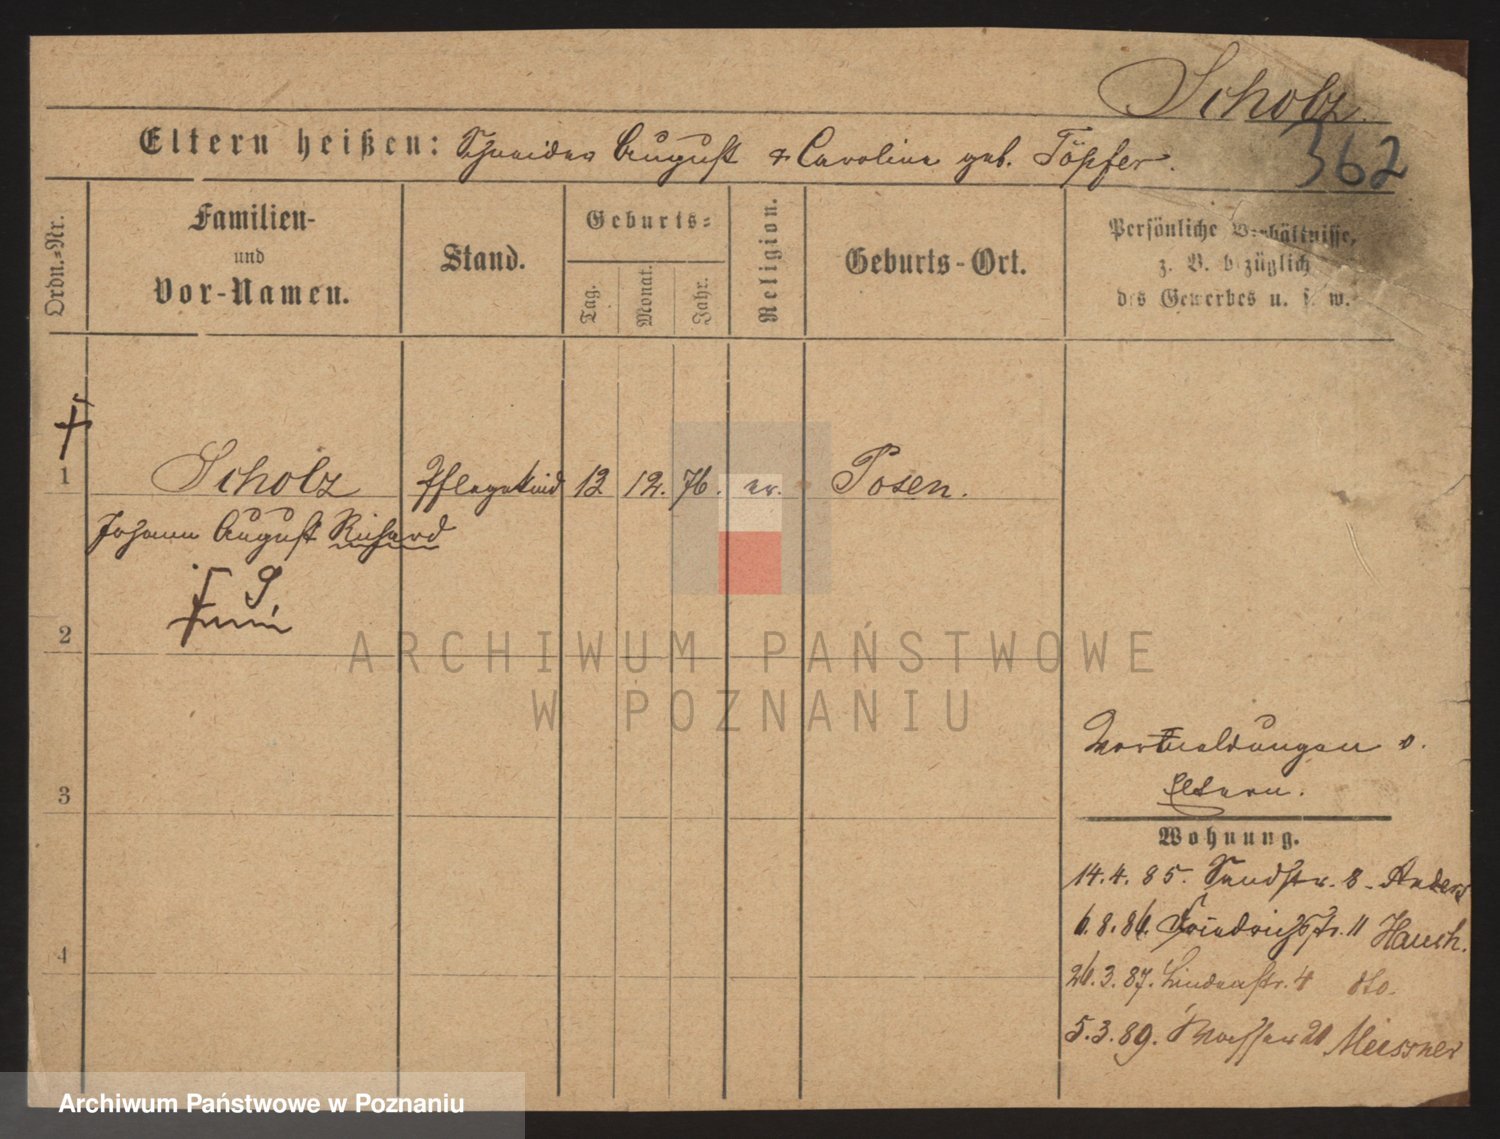 Scholz.
362
Eltern heißen: Schneider August & Caroline geb. Töpfer.
Ordn.-Nr.
Familien-
und
Vor-Namen.
Stand.
Geburts-
Tag.
Monat.
Jahr.
Religion.
Geburts-Ort.
Persönliche Verhältnisse,
z. B. bezüglich
des Gewerbes u. s. w.
1 Scholz Pflegekind 12 12. 76. ev. Posen.
Johann August Richard
2
3
4
ARCHIWUM PAŃSTWOWE
W POZNANIU
Vormeldungen s.
Eltern.
Wohnung.
14.4.85. Sandstr. 8. Anders
6.8.86. Friedrichstr. 11 Hauch.
26.3.87. Lindenstr. 4 dto.
5.3.89. Wasser 20 Meissner
Archiwum Państwowe w Poznaniu